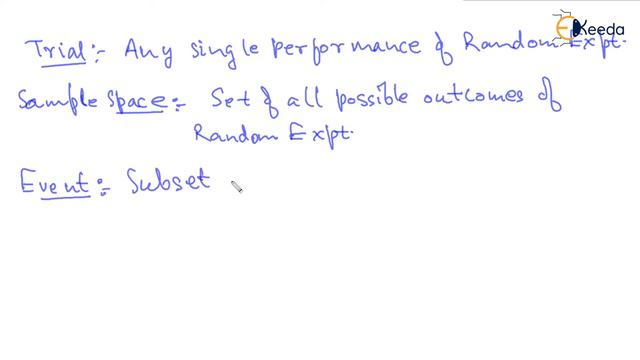 Trial :- Any single performance of Random Expt.
Sample Space :- Set of all possible outcomes of
Random Expt.
Event :- Subset
EKeeda